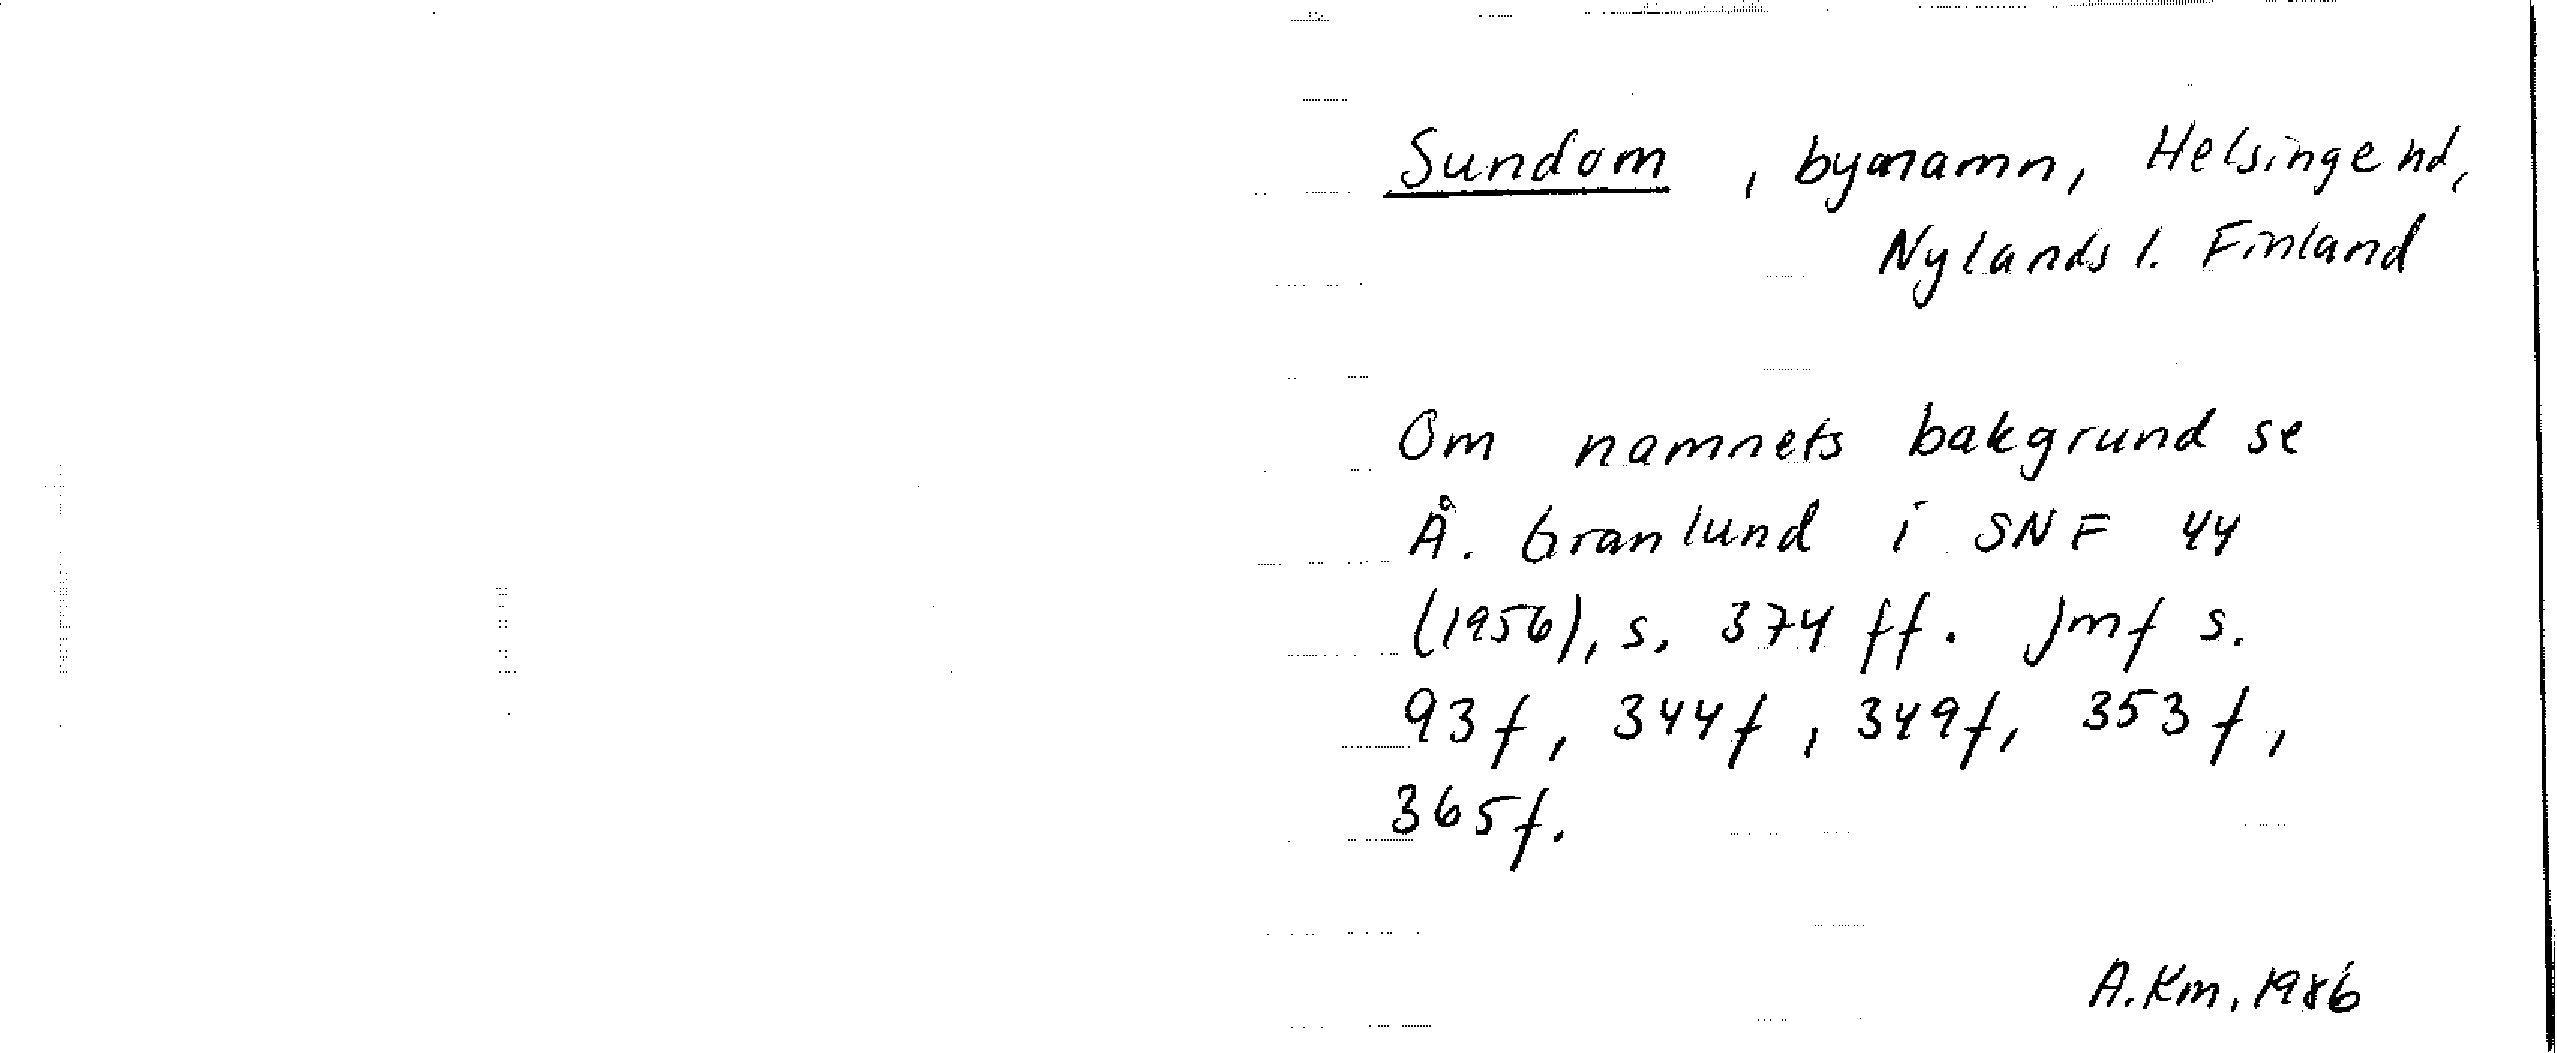 Sundom, bynamn, Helsinge hd,
Nylands l. Finland
Om namnets bakgrund se
Å. Granlund i SNF 44
(1956), s. 374 ff. Jmf s.
93f, 344f, 349f, 353f,
365f.
A.Km. 1986